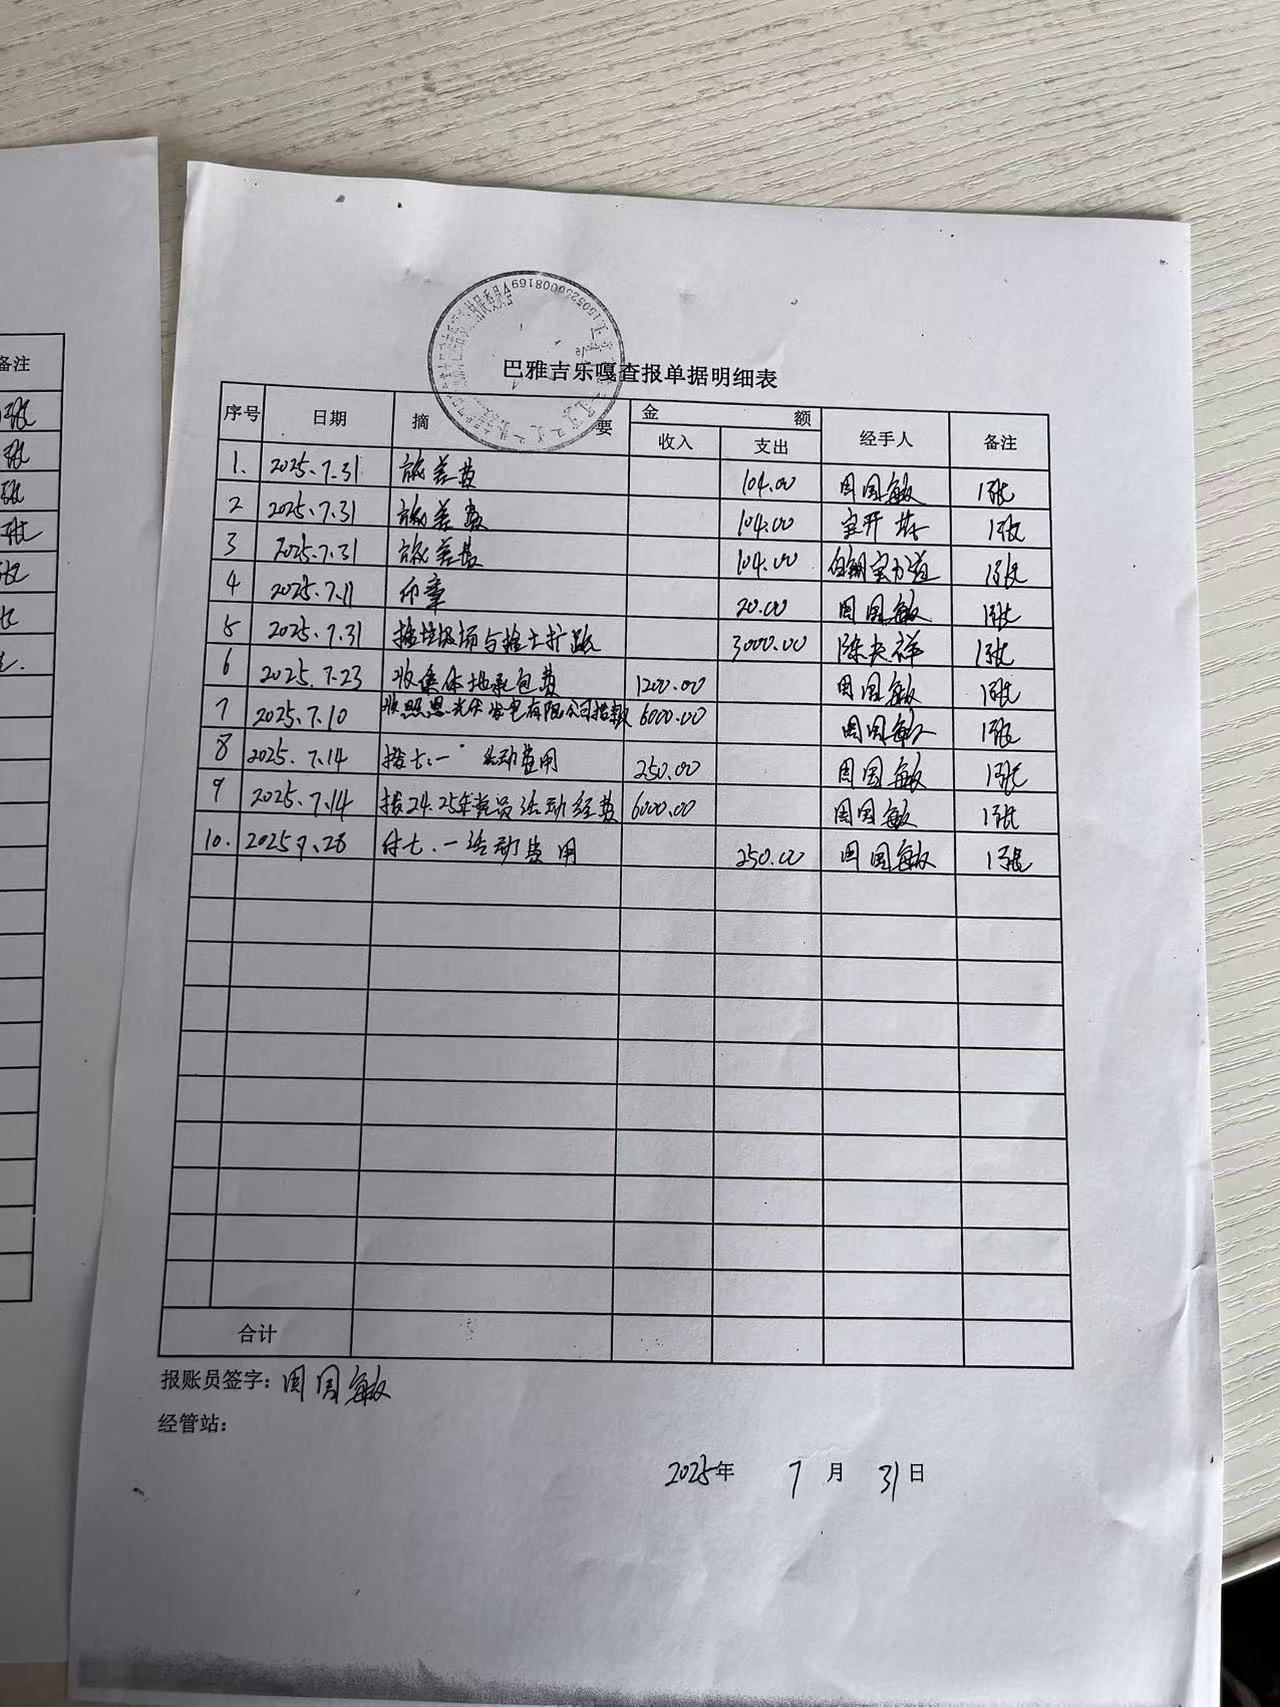 备注
1张
1张
1张
1张
巴雅吉乐嘎查报单据明细表
序号 日期 摘要 金额 经手人 备注
收入 支出
1. 2025.7.31 旅差费 104.00 周国敏 1张
2 2025.7.31 旅差费 104.00 1张
3 2025.7.31 旅差费 104.00 1张
4 2025.7.11 印章 20.00 周国敏 1张
5 2025.7.31 垃圾场与 土扩路 3000.00 1张
6 2025.7.23 收集体地承包费 1200.00 周国敏 1张
7 2025.7.10 收 光伏发电有限公司 6000.00 周国敏 1张
8 2025.7.14 拨七.一 活动费用 250.00 周国敏 1张
9 2025.7.14 拨24.25年党员活动经费 6000.00 周国敏 1张
10. 2025.7.28 付七.一活动费用 250.00 周国敏 1张
合计
报账员签字: 周国敏
经管站:
2025年 7月 31日